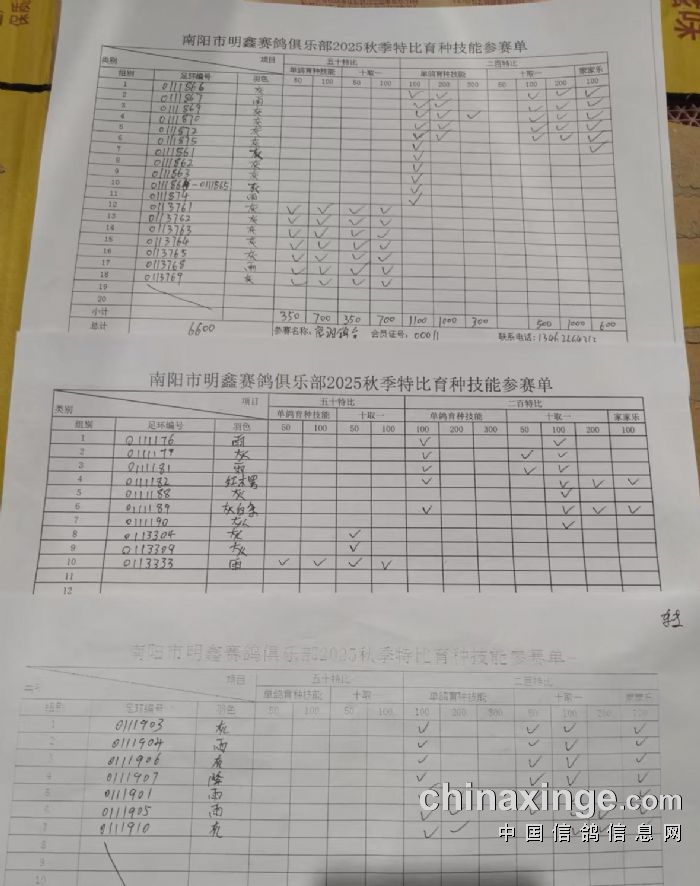 南阳市明鑫赛鸽俱乐部2025秋季特比育种技能参赛单
类别 项目 五十特比 二百特比
组别 足环编号 羽色 单鸽育种技能 十取一 单鸽育种技能 十取一 家家乐
50 100 50 100 100 200 300 50 100 200 100
1 0111866 灰 ✓ ✓ ✓ ✓ ✓
2 0111867 雨 ✓ ✓ ✓ ✓ ✓
3 0111869 灰
4 0111870 灰
5 0111872 灰
6 0111875 灰
7 0111861 灰 ✓
8 0111862 灰 ✓
9 0111863 灰 ✓
10 0111864-0111865 灰 ✓
11 0111874 雨 ✓
12 0113761 灰 ✓ ✓ ✓ ✓
13 0113762 灰 ✓ ✓ ✓ ✓
14 0113763 灰 ✓ ✓ ✓ ✓
15 0113764 灰 ✓ ✓ ✓ ✓
16 0113765 灰 ✓ ✓ ✓ ✓
17 0113768 雨 ✓ ✓ ✓ ✓
18 0113769 灰 ✓ ✓ ✓ ✓
19
20
小计 350 700 350 700 1100 1000 300 500 1000 600
总计 6600 参赛名称: 会员证号: 00011 联系电话:
南阳市明鑫赛鸽俱乐部2025秋季特比育种技能参赛单
类别 项目 五十特比 二百特比
组别 足环编号 羽色 单鸽育种技能 十取一 单鸽育种技能 十取一 家家乐
50 100 50 100 100 200 300 50 100 200 100
1 0111176 雨 ✓ ✓
2 0111179 灰 ✓ ✓ ✓
3 0111181 雨 ✓ ✓ ✓
4 0111182 ✓ ✓ ✓ ✓
5 0111188 灰 ✓
6 0111189 灰白条 ✓ ✓ ✓ ✓
7 0111190 灰 ✓
8 0113304 灰 ✓
9 0113309 灰 ✓
10 0113333 雨 ✓ ✓ ✓ ✓
11
12
南阳市明鑫赛鸽俱乐部2025秋季特比育种技能参赛单
项目 五十特比 二百特比
组别 足环编号 羽色 单鸽育种技能 十取一 单鸽育种技能 十取一 家家乐
50 100 50 100 100 200 300 50 100 200 100
1 0111903 灰 ✓ ✓ ✓ ✓
2 0111904 雨 ✓ ✓ ✓ ✓
3 0111906 灰 ✓ ✓ ✓ ✓
4 0111907 ✓ ✓ ✓ ✓
5 0111901 雨
6 0111905 雨
7 0111910 灰
8
9
10
chinaxinge.com
中国信鸽信息网